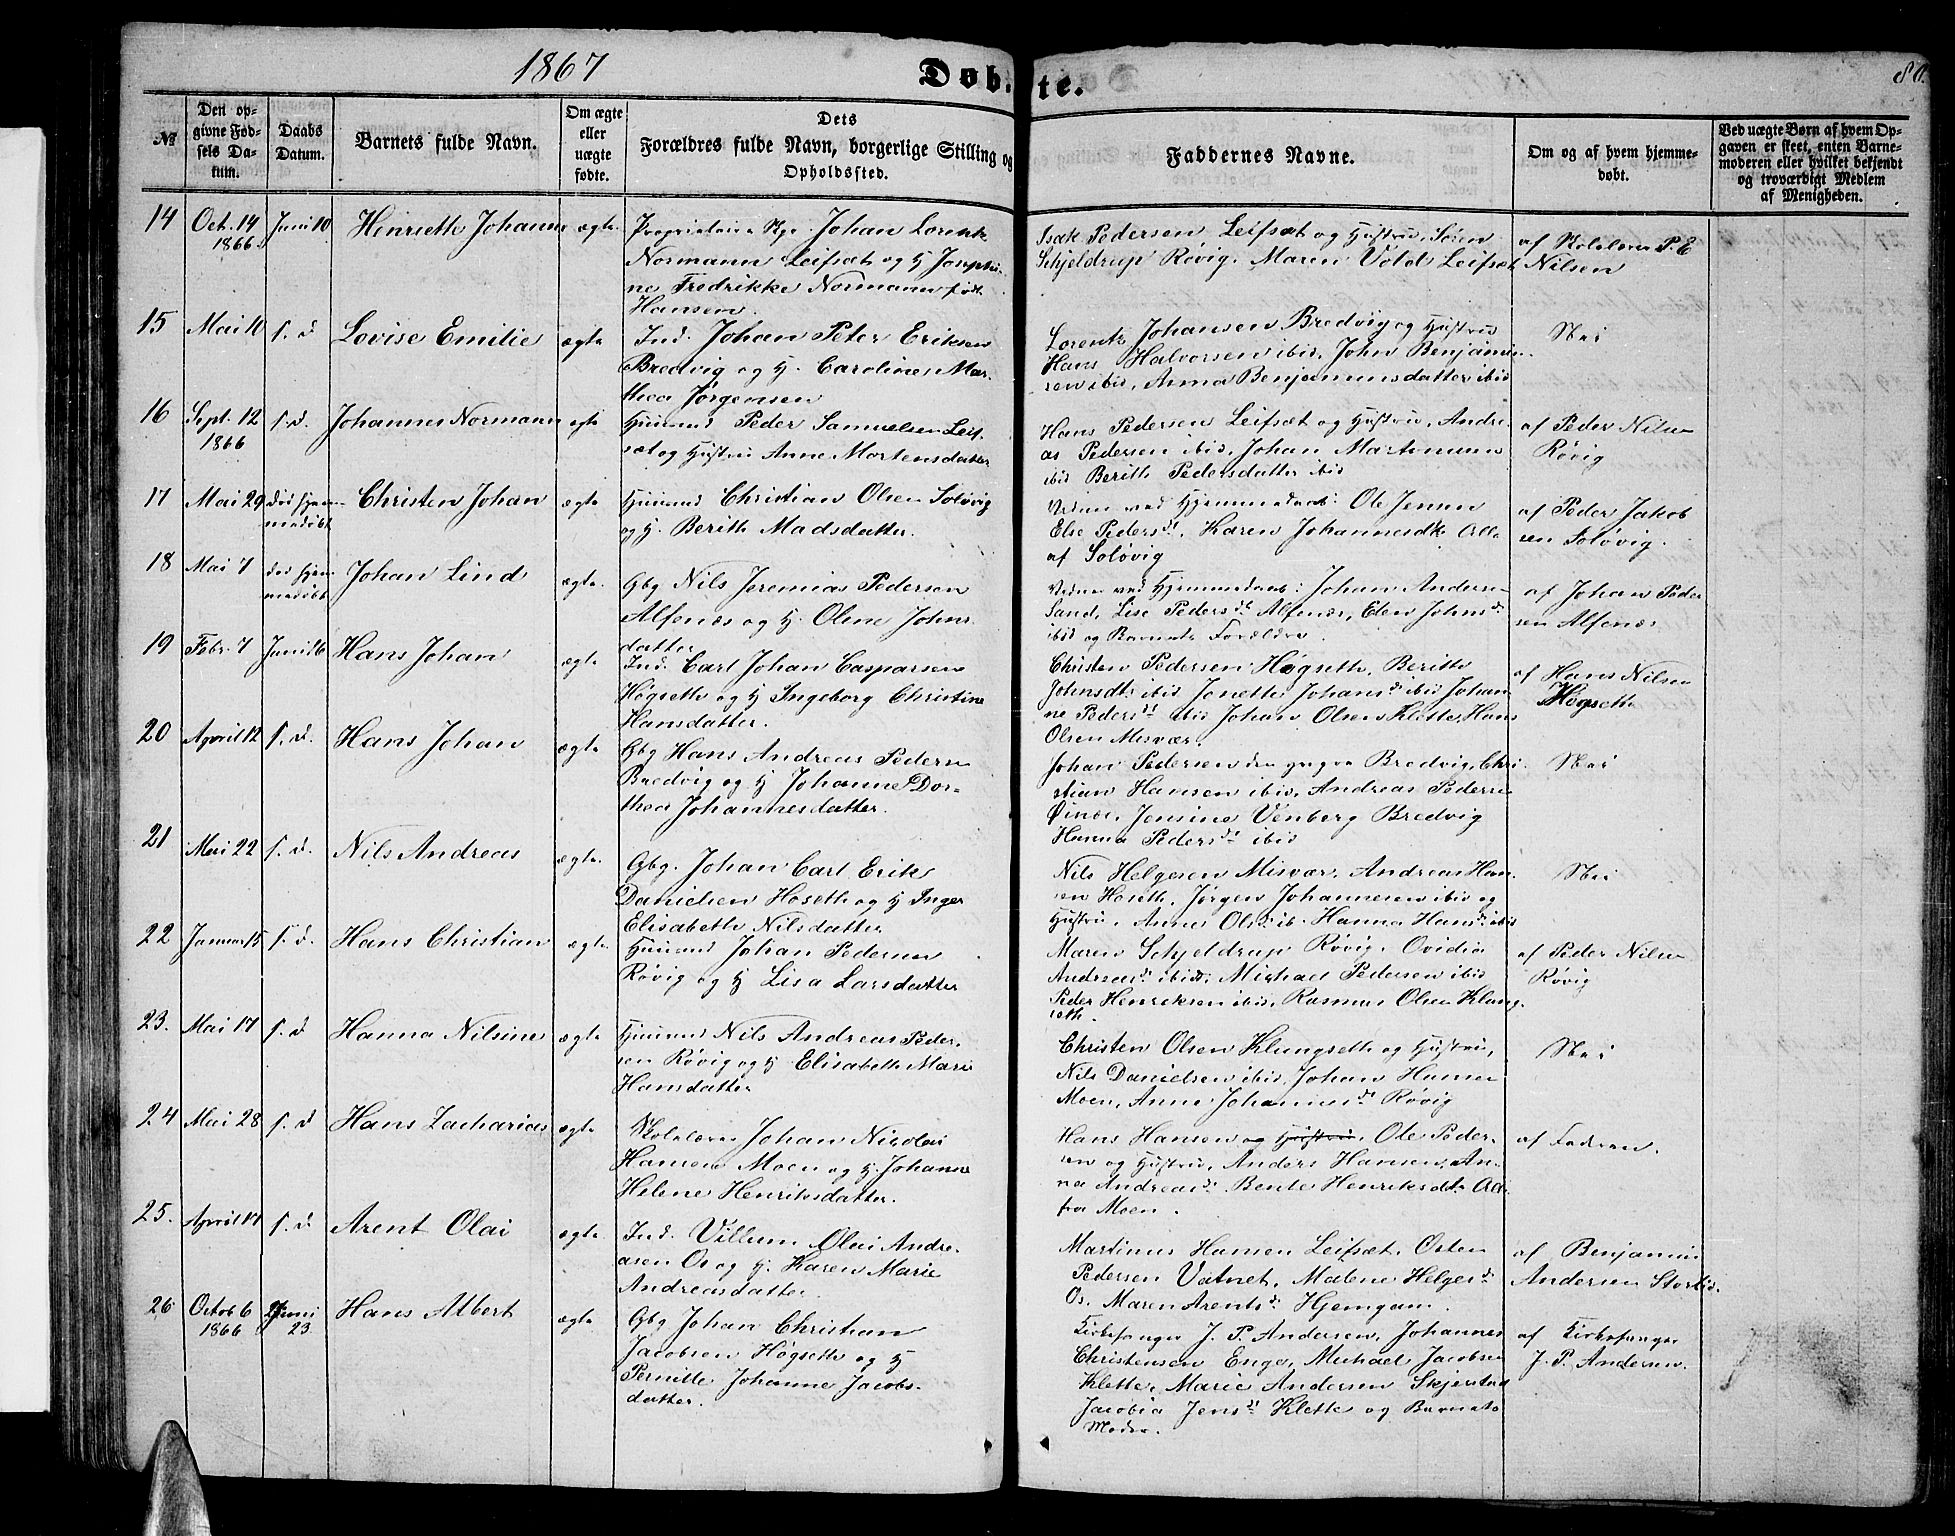 1867
Døbte.
80.
№
Den op-
givne Fød-
sels Da-
tum.
Daabs
Datum.
Barnets fulde Navn.
Om ægte
eller
uægte
fødte.
Dets
Forældres fulde Navn, borgerlige Stilling og
Opholdssted.
Faddernes Navne.
Om og af hvem hjemme-
døbt.
Ved uægte Børn af hvem Op-
gaven er skeet, enten Barne-
moderen eller hvilket bekjendt
og troværdigt Medlem
af Menigheden.
14 Oct. 14 1866 Juni 10 Henriette Johanne ægte
Proprietair Johan Lorentz
Normann Leifsæt og H Josephi-
ne Fredrikke Normann født
Hansen.
Isak Pedersen Leifsæt og Hustru, Søren
Schjeldrup Røvig, Maren Vold Leifsæt
af Skolelærer P. E
Nilsen
15 Mai 10 s. d Lovise Emilie ægte
Ind. Johan Peter Eriksen
Bredvig og H. Caroline Mar-
thea Jørgensen
Lorentz Johansen Bredvig og Hustru
Hans Halvorsen ibid, John Benjamin-
sen ibid, Anna Benjaminsdatter ibid
Nei
16 Sept. 12 1866 s. d. Johannes Normann ægte
Huusmd Peder Samuelsen Leif-
sæt og Hustru Anne Mortensdatter
Hans Pedersen Leifsæt og Hustru, Andre-
as Pedersen ibid, Johan Martin
ibid Berith Pedersdatter ibid
af Peder Nilsen
Røvig
17 Mai 29 død hjem-
medøbt Christen Johan ægte
Huusmd Christian Olsen Soløvig
og H. Berith Madsdatter.
Vidner ved Hjemmedaab: Ole Jensen
Else Pedersdt, Karen Johannesdt. Alle
af Soløvig
af Peder Jakob
sen Soløvig.
18 Mai 7 død hjem-
medøbt Johan Lind ægte
Gbg Nils Jeremias Pedersen
Alfenæs og H. Oline Johns
datter
Vidner ved Hjemmedaab: Johan Andersen
Sand, Lise Pedersdt Alfenæs, Elen Johnsd
ibid og Barnets Forældre.
af Johan Peder
sen Alfenæs
19 Febr. 7 Juni 16 Hans Johan ægte
Ind. Carl Johan Caspersen
Høgseth og H Ingeborg Christine
Hansdatter.
Christen Pedersen Høgseth, Berith
Johnsdt. ibid Jonette Johansd ibid Johan-
ne Pedersdt ibid Johan Olsen Klette, Hans
Olsen Misvær.
af Hans Nilsen
Høgseth
20 April 12 s. d. Hans Johan ægte
Gbg Hans Andreas Pedersen
Bredvig og H Johanne Dor-
thea Johannesdatter.
Johan Pedersen den yngre Bredvig, Chri-
stian Hansen ibid, Andreas Pedersen
Jensine Venberg Bredvig
Hanna Pedersdt ibid
Nei
21 Mai 22 s. d. Nils Andreas ægte
Gbg. Johan Carl Erik
Danielsen Hoseth og H Inger
Elisabeth Nilsdatter
Nils Helgesen Misvær, Andreas Han-
sen Hoseth, Jørgen Johannesen ibid og
Hustru, Anne Olsd. ib. Hanna Hansd ibid
Nei
22 Januar 15 s. d. Hans Christian ægte
Huusmd Johan Pedersen
Røvig og H Lisa Larsdatter
Maren Schjeldrup Røvig, Ovidia
Andreasd ibid, Michael Pedersen ibid
Peder Henriksen ibid, Rasmus Olsen Klung-
seth.
af Peder Nilsen
Røvig
23. Mai 17 s. d Hanna Nilsine ægte
Huusmd Nils Andreas Peder-
sen Røvig og H Elisabeth Marie
Hansdatter
Christen Olsen Klungseth og Hustru,
Nils Danielsen ibid, Johan Hansen
Moen, Anne Johannesd Røvig
Nei
24 Mai 28 s. d Hans Zacharias ægte
Skolelærer Johan Nicolai
Hansen Moen og H. Johanne
Helene Henriksdatter.
Hans Hansen og Hustru, Ole Peder-
sen og Hustru, Anders Hansen, An-
na Andreasd. Bente Henriksdt. Alle
fra Moen.
af Faderen.
25. April s. d Arent Olai ægte
Ind. Villum Olai Andre-
asen Os og H. Karen Marie
Andreasdatter.
Martinus Hansen Leifsæt, Osten
Pedersen Vatnet, Malene Helgesd
Os, Maren Arentsd Hjemgam.
af Benjamin
Andersen
26 Octob 6 1866 Juni 23 Hans Albert ægte
Gbg Johan Christian
Jacobsen Høgseth og H
Pernille Johanne Jacobs-
datter.
Kirkesanger J. P. Andersen, Johannes
Christensen Enge, Michael Jacobsen
Klette, Marie Andersen Skjerstad
Jacobia Jensdt Klette og Barnets
Moder.
af Kirkesanger
J. P. Andersen.